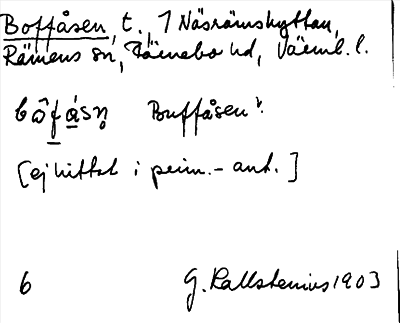 Boffåsen, t., 1 Näsrämshyttan,
Rämens sn, Färnebo hd, Värml. l.
Buffåsen
[ej hittat i prim.-ant.]
6 G. Kallstenius 1903